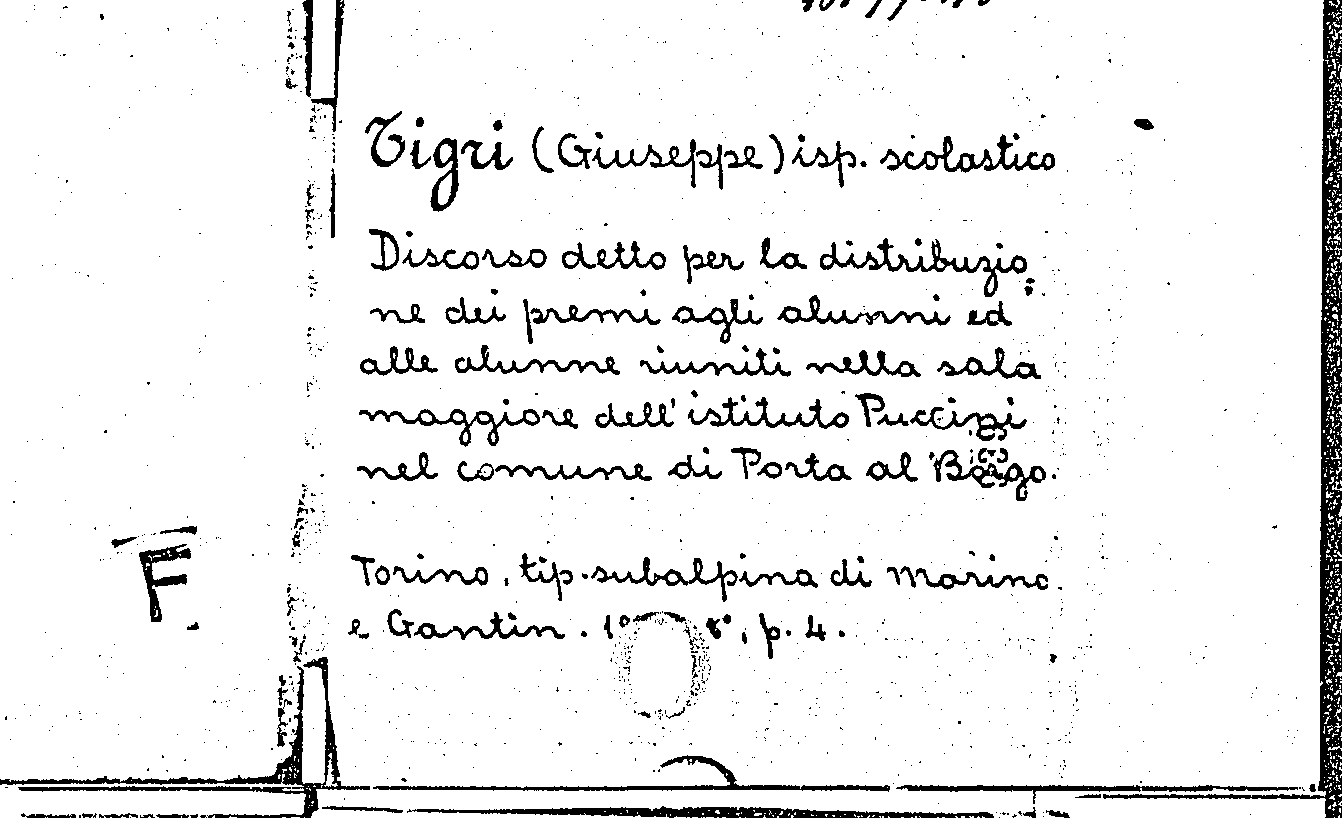 Tigri (Giuseppe) isp. scolastico
Discorso detto per la distribuzio
ne dei premi agli alunni ed
alle alunne riuniti nella sala
maggiore dell' istituto Puccini
nel comune di Porta al Borgo.
Torino, tip. subalpina di Marino
e Gantin. 8°, p. 4.
F.